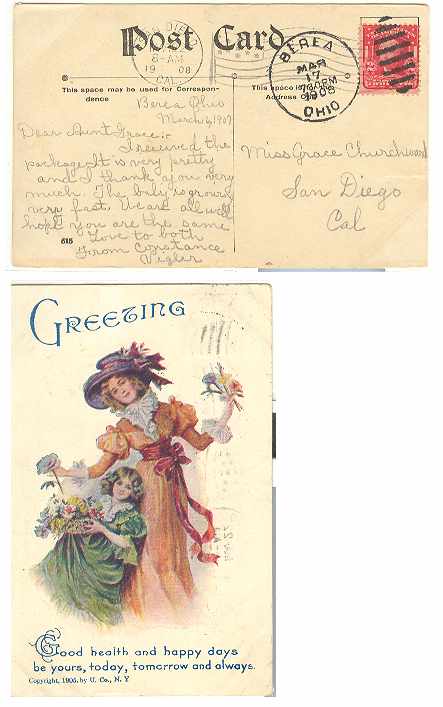 Post Card
8-AM
19 08
CAL.
BEREA
MAR
17
1908
OHIO
This space may be used for Correspondence
This space is for the
Address Only
Berea Ohio
March 16, 1908
Dear Aunt Grace:-
I received the
package. It is very pretty
and I thank you very
much. The baby is growing
very fast. We are all well
hope you are the same
Love to both
From Constance
Miss Grace Churchward
San Diego
Cal
515
GREETING
Good health and happy days
be yours, today, tomorrow and always.
Copyright, 1905, by U. Co., N. Y